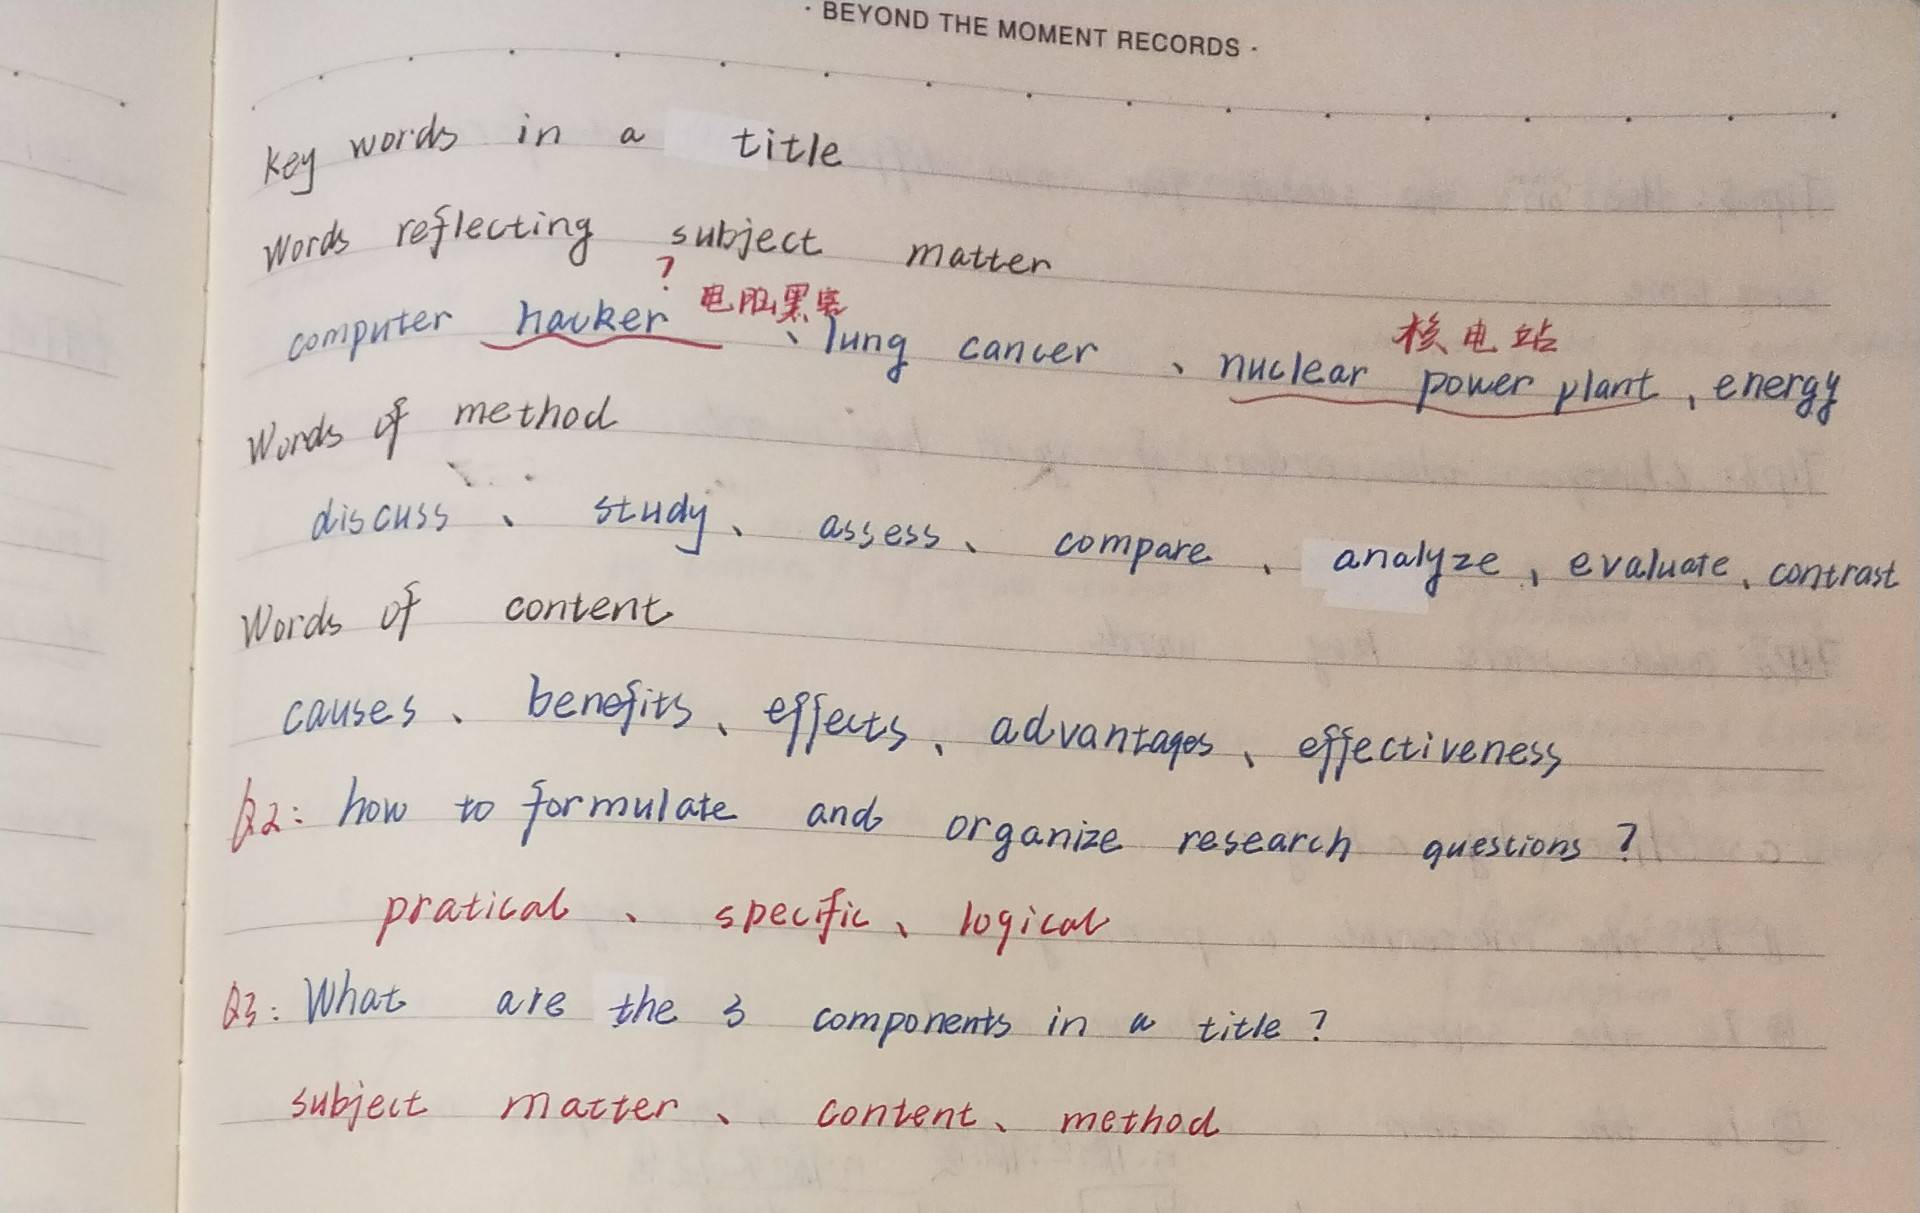 · BEYOND THE MOMENT RECORDS ·
key words in a title
Words reflecting subject matter
? 电脑黑客 核电站
computer hacker、lung cancer、nuclear power plant, energy
Words of method
discuss、study、assess、compare、analyze, evaluate、contrast
Words of content
causes、benefits、effects、advantages、effectiveness
Q2: how to formulate and organize research questions?
pratical、specific、logical
Q3: What are the 3 components in a title?
subject matter、content、method